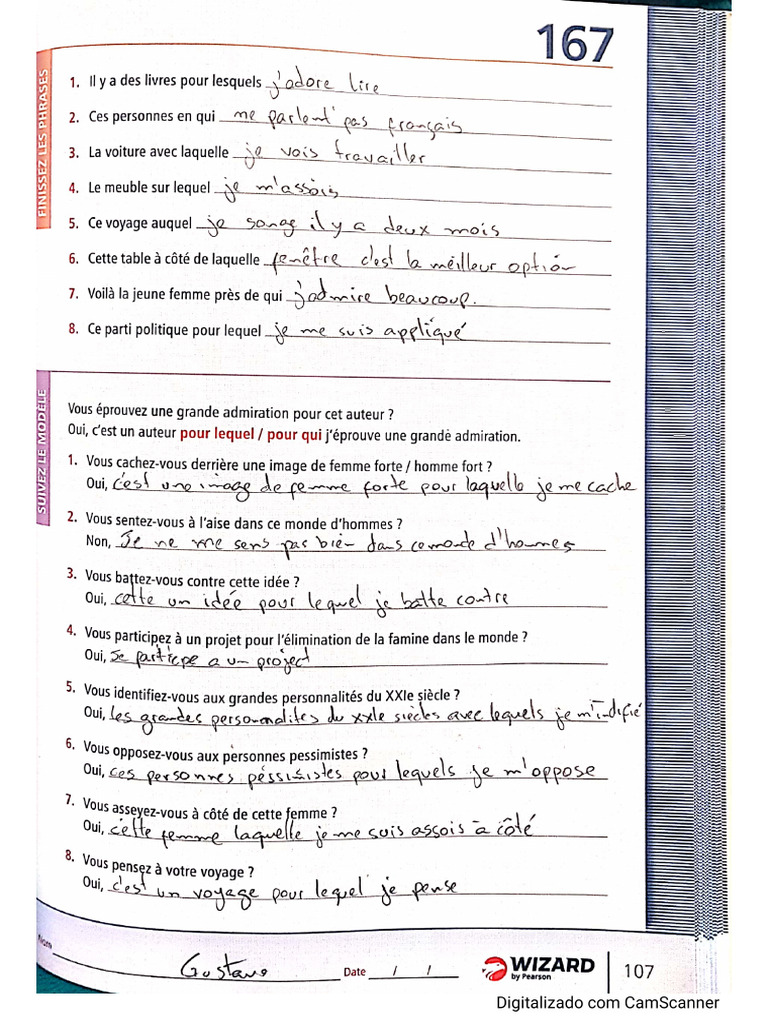 167
FINISSEZ LES PHRASES
1. Il y a des livres pour lesquels j'adore lire
2. Ces personnes en qui me parlent pas français
3. La voiture avec laquelle je vois travailler
4. Le meuble sur lequel je m'assois
5. Ce voyage auquel je song il y a deux mois
6. Cette table à côté de laquelle fenêtre c'est la méilleur optión
7. Voilà la jeune femme près de qui j'admire beaucoup.
8. Ce parti politique pour lequel je me suis appliqué
SUIVEZ LE MODÈLE
Vous éprouvez une grande admiration pour cet auteur ?
Oui, c'est un auteur pour lequel / pour qui j'éprouve une grande admiration.
1. Vous cachez-vous derrière une image de femme forte / homme fort ?
Oui, c'est une image de femme forte pour laquelle je me cache
2. Vous sentez-vous à l'aise dans ce monde d'hommes ?
Non, Je ne me sens pas bien dans ce monde d'hommes
3. Vous battez-vous contre cette idée ?
Oui, cette un idée pour lequel je batte contre
4. Vous participez à un projet pour l'élimination de la famine dans le monde ?
Oui, Je participe a un project
5. Vous identifiez-vous aux grandes personnalités du XXIe siècle ?
Oui, les grandes personnalites du xxIe siècles avec lequels je m'indifié
6. Vous opposez-vous aux personnes pessimistes ?
Oui, ces personnes péssimistes pour lequels je m'oppose
7. Vous asseyez-vous à côté de cette femme ?
Oui, cette femme laquelle je me suis assois à côté
8. Vous pensez à votre voyage ?
Oui, c'est un voyage pour lequel je pense
Nom Gustavo Date / / WIZARD by Pearson 107
Digitalizado com CamScanner